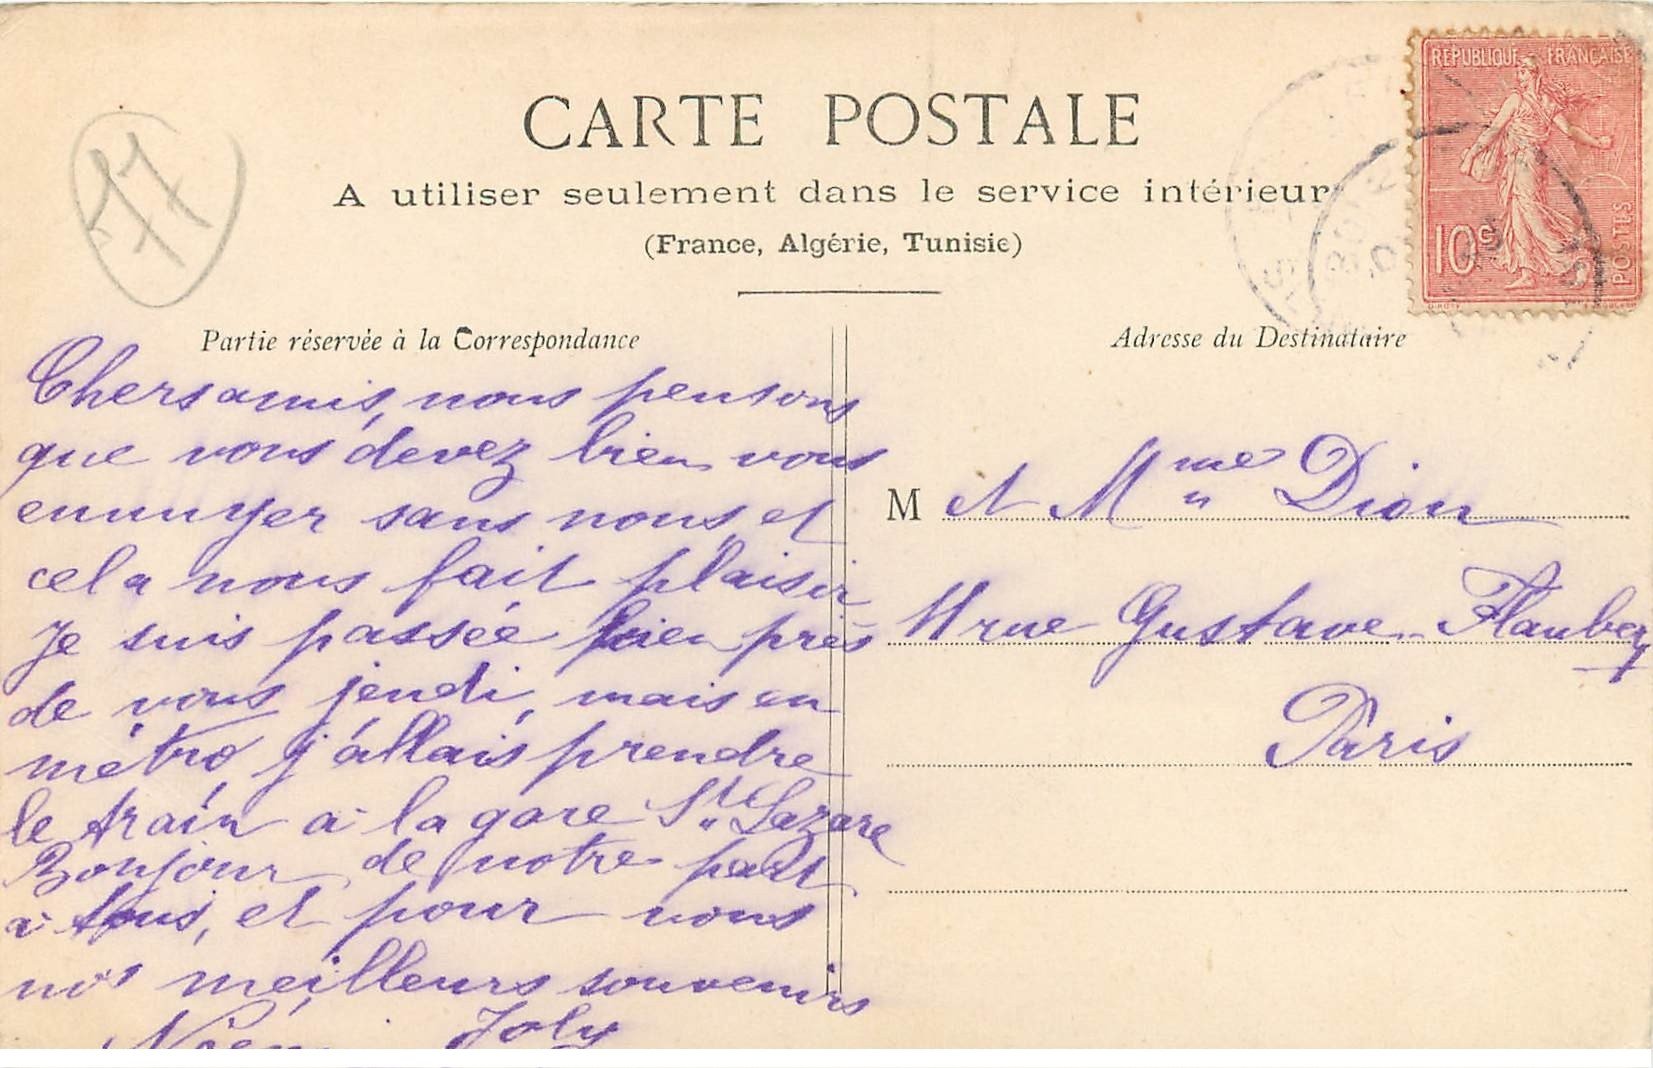 CARTE POSTALE
A utiliser seulement dans le service intérieur
(France, Algérie, Tunisie)
77
REPUBLIQUE FRANÇAISE
10c
POSTES
Partie réservée à la Correspondance
Chers amis, nous pensons
que vous devez bien vous
ennuyer sans nous, et
cela nous fait plaisir
Je suis passée bien près
de vous jeudi, mais en
métro, j'allais prendre
le train à la gare St Lazare
Bonjour de notre part
à tous, et pour vous
nos meilleurs souvenirs
Joly
Adresse du Destinataire
M et Mme Dion
11 rue Gustave Flaubert
Paris